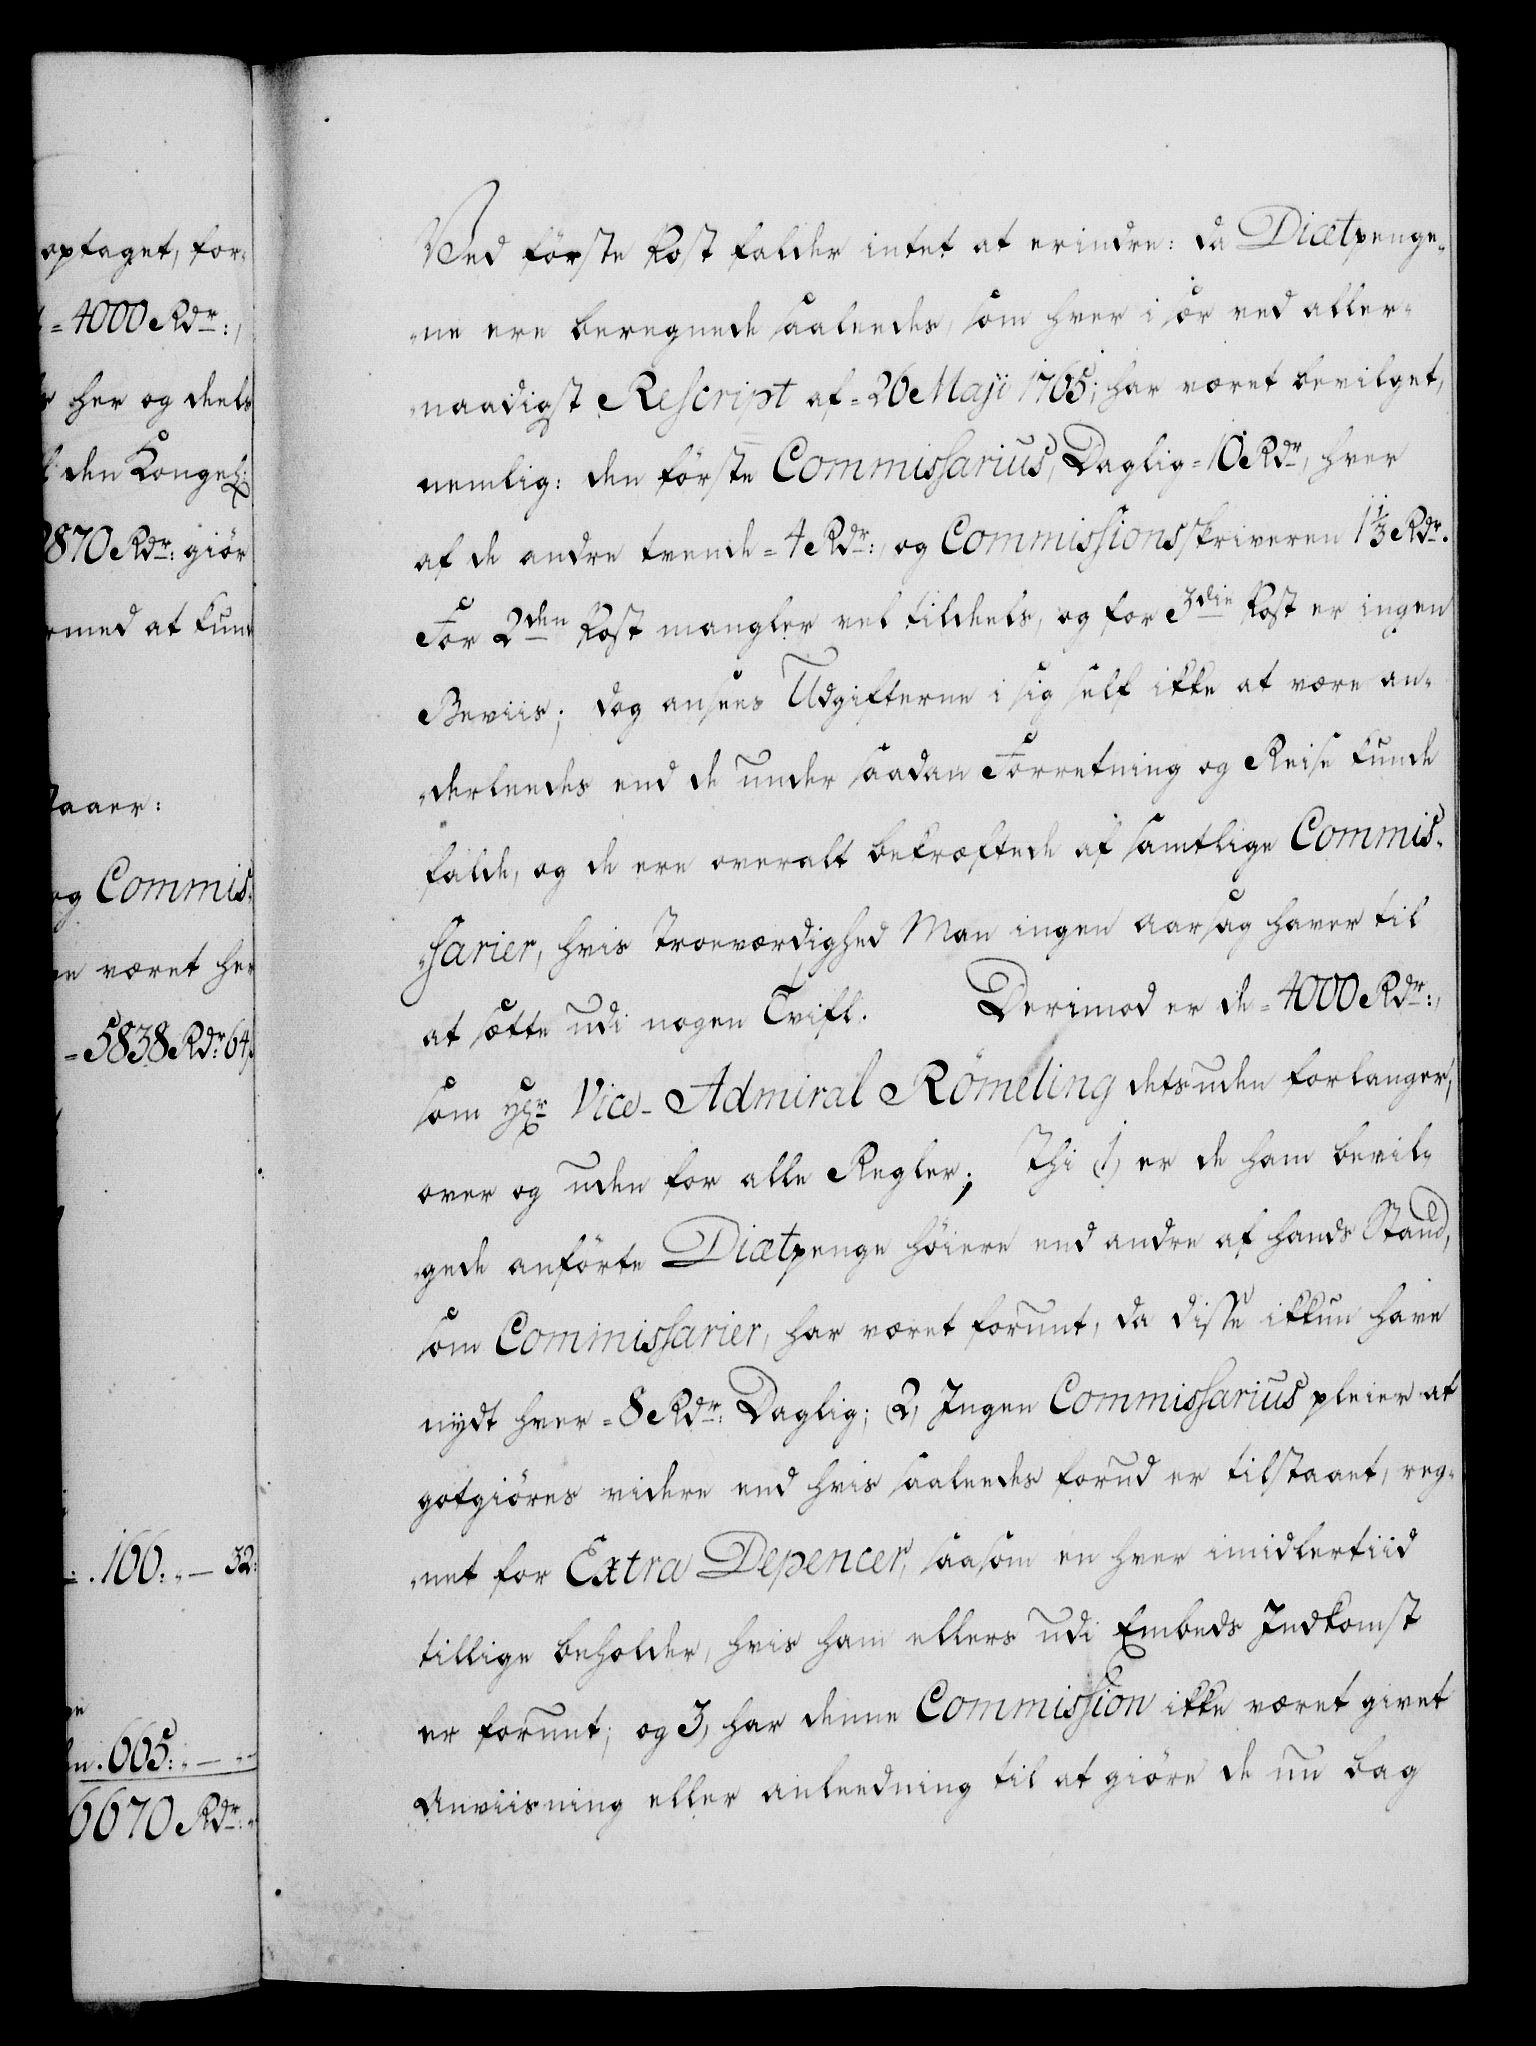 optaget, for-
= 4000 Rdr:,
her og deels
den Kongel:
2870 Rdr: giör
rmed at kun-
aaer:
og Commis-
været her
= 5838 Rdr: 64
. 166: „ — 32:
665: „ — „ —
6670 Rdr: „
Ved förste Post falder intet at erindre: da Diætpenge-
-ne ere beregnede saaledes, som hver i sær ved aller-
-naadigst Rescript af = 26 Maji 1765; har været bevilget,
nemlig: den förste Commissarius, Daglig = 10 Rdr, hver
af de andre tvende = 4 Rdr:, og Commissionsskriveren 1 1/3 Rdr.
For 2den Post mangler vel tildeels, og for 3die Post er ingen
Beviis; dog ansees Udgifterne i sig self ikke at være an-
-derleedes end de under saadan Forretning og Reise kunde
falde, og de ere overalt bekræftede af samtlige Commis-
-sarier, hvis Troeværdighed Man ingen aarsag haver til
at sætte udi nogen Tvifl. Derimod er de = 4000 Rdr:,
som Hr Vice-Admiral Römeling desuden forlanger,
over og uden for alle Regler; Thi 1, er de ham bevil-
-gede anförte Diætpenge höiere end andre af hands Stand,
som Commissarier, har været forunt, da disse ikkun have
nydt hver = 8 Rdr: Daglig; 2, Ingen Commissarius pleier at
gotgiöres videre end hvis saaleedes forud er tilstaaet, reg-
-net for Extra Depencer, saasom en hver imidlertiid
tillige beholder, hvis ham ellers udi Embeds Indkomst
er forunt; og 3, har denne Commission ikke været givet
Anviisning eller anleedning til at giöre de nu bag